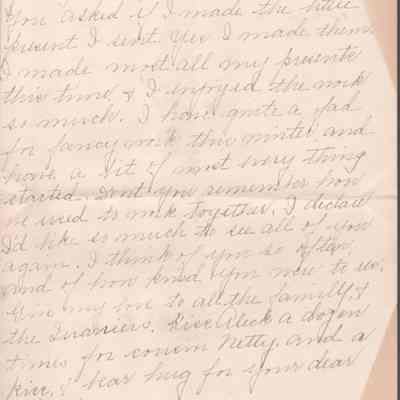 You asked if I made the little
present I sent. Yes I made them
I made most all my presents
this time, & I enjoyed the work
so much. I have quite a fad
for fancy work this winter and
have a bit of most every thing
started. Dont you remember how
we used to work together. I declare
I'd like so much to see all of you
again. I think of you so often
and of how kind you were to us.
Give my love to all the family &
the. Kiss Alick a dozen
times for cousin Netty. and a
kiss & bear hug for your dear